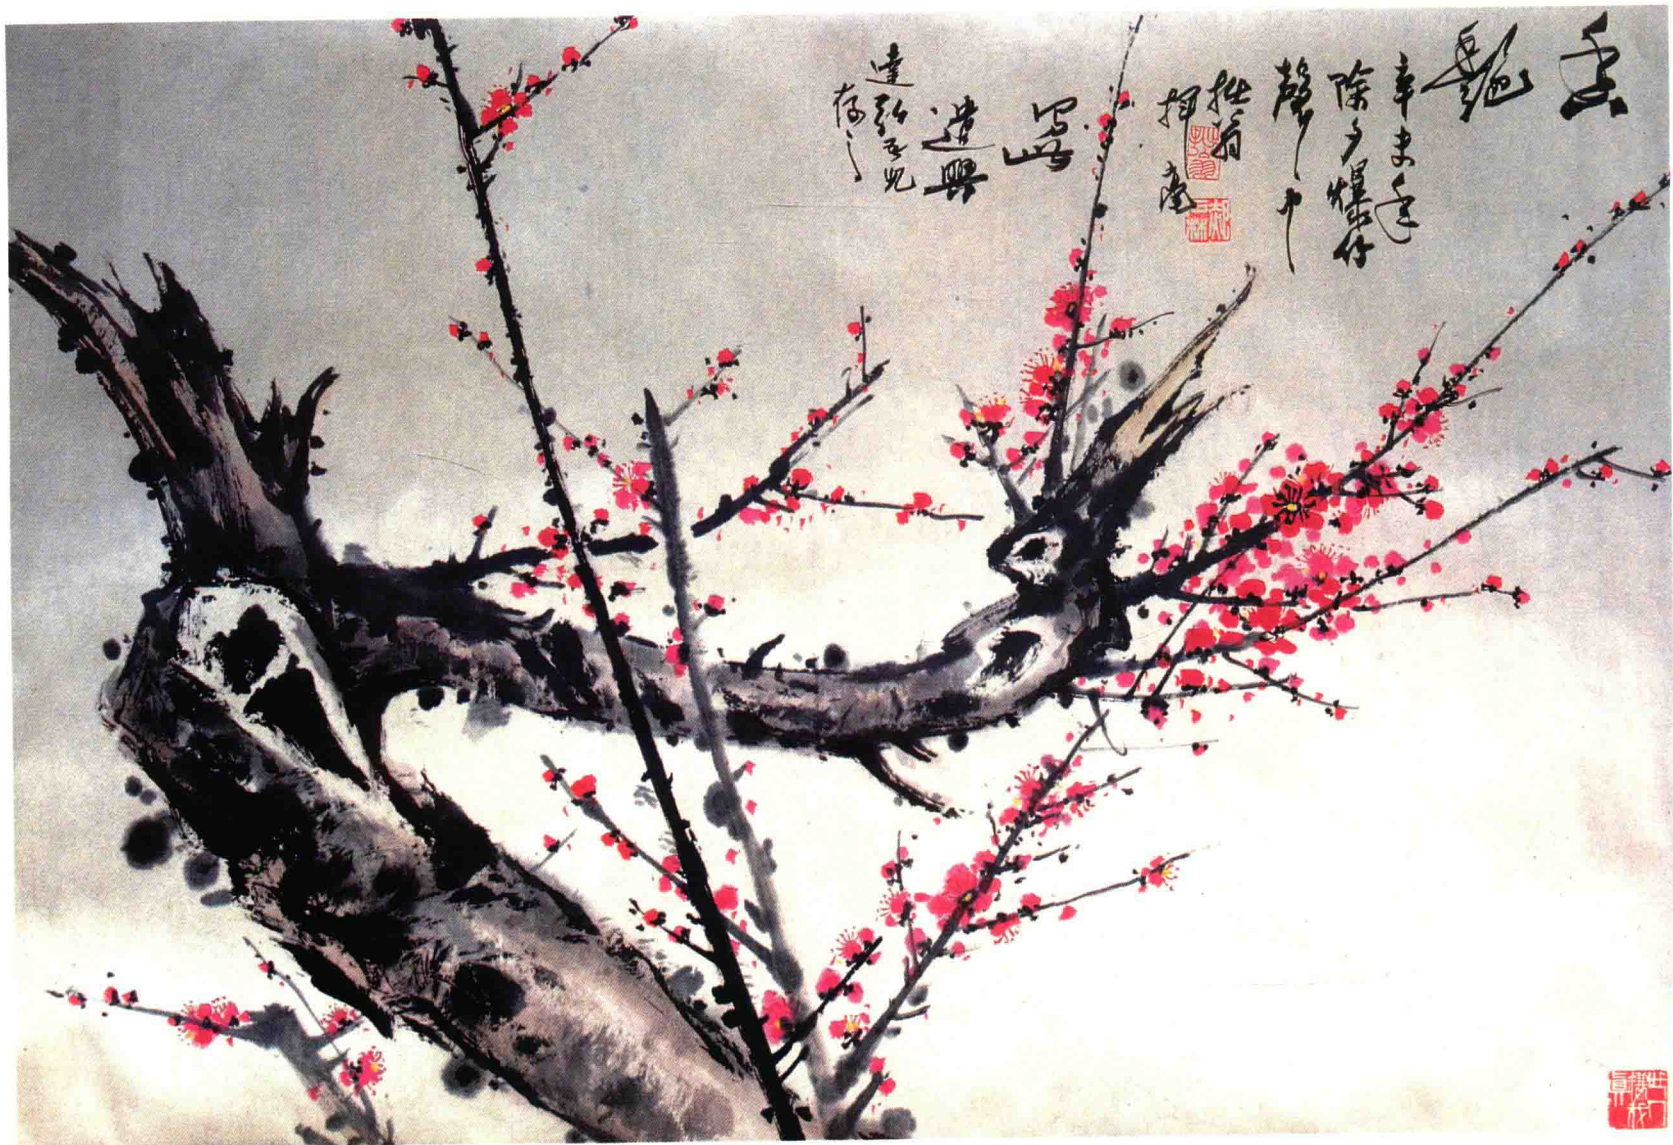 香
艷
辛未年
除夕爆竹
聲中
拙翁
揮毫
寫此
遣興
達弘吾兄
存之